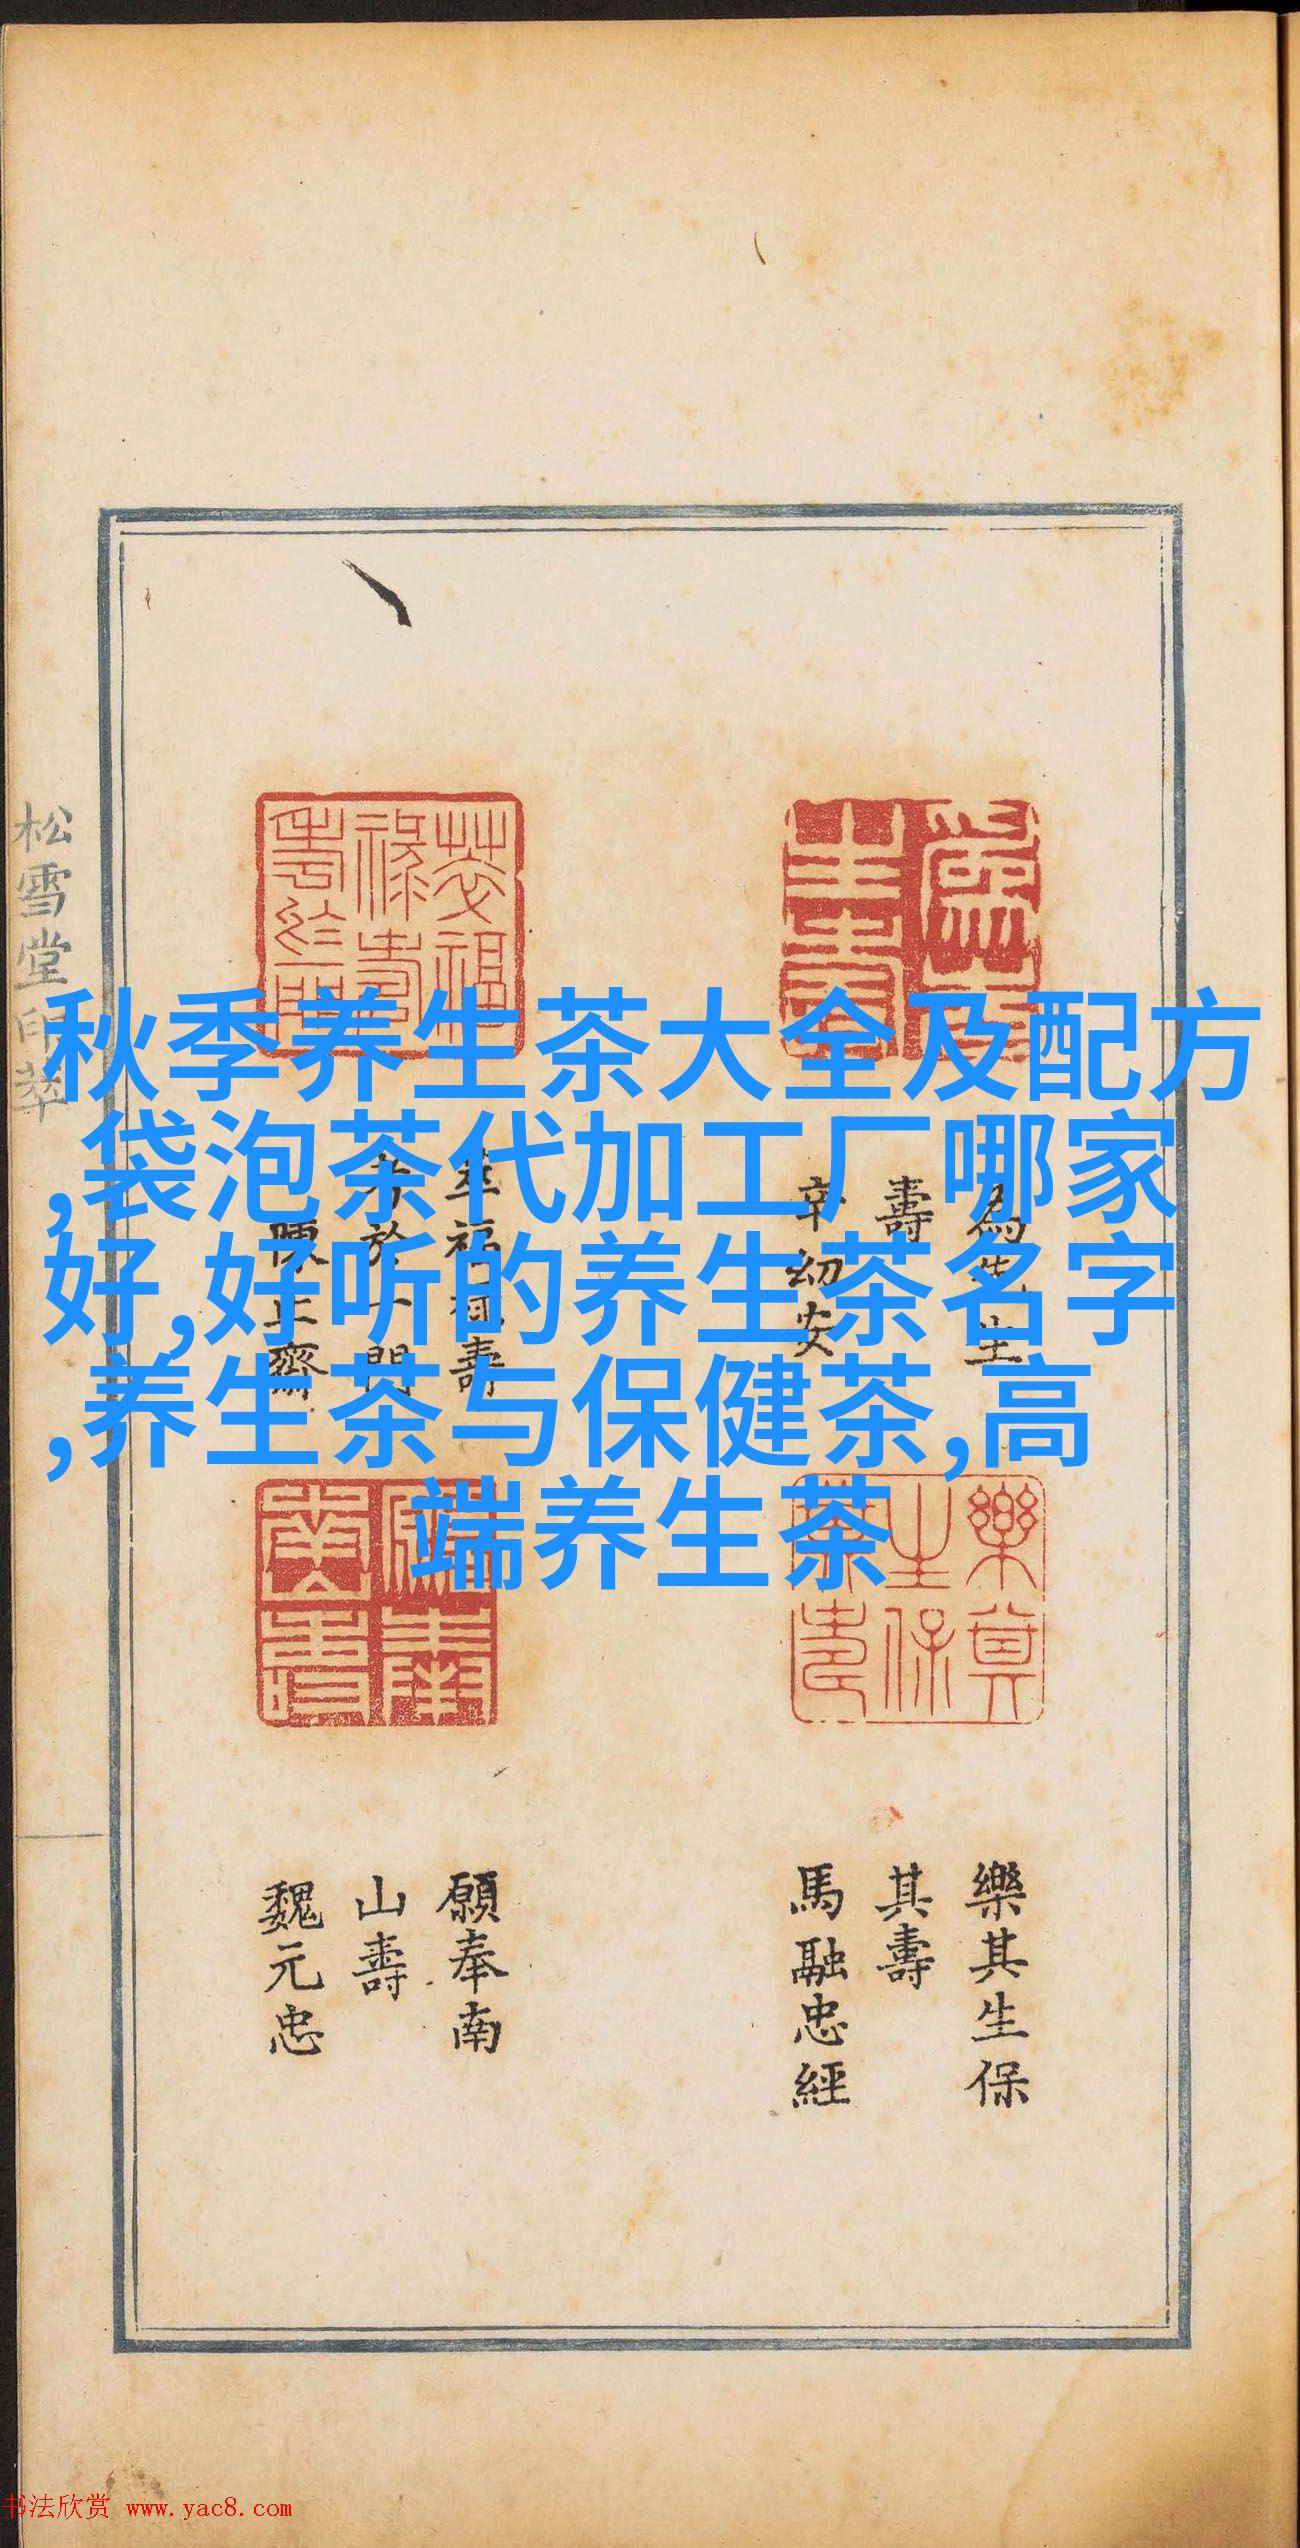 秋季养生茶大全及配方
,袋泡茶代加工厂哪家
好,好听的养生茶名字
,养生茶与保健茶,高
端养生茶
松雪堂印萃
壽
辛幼安
樂其生保
其壽
馬融忠經
願奉南
山壽
魏元忠
书法欣赏 www.yac8.com